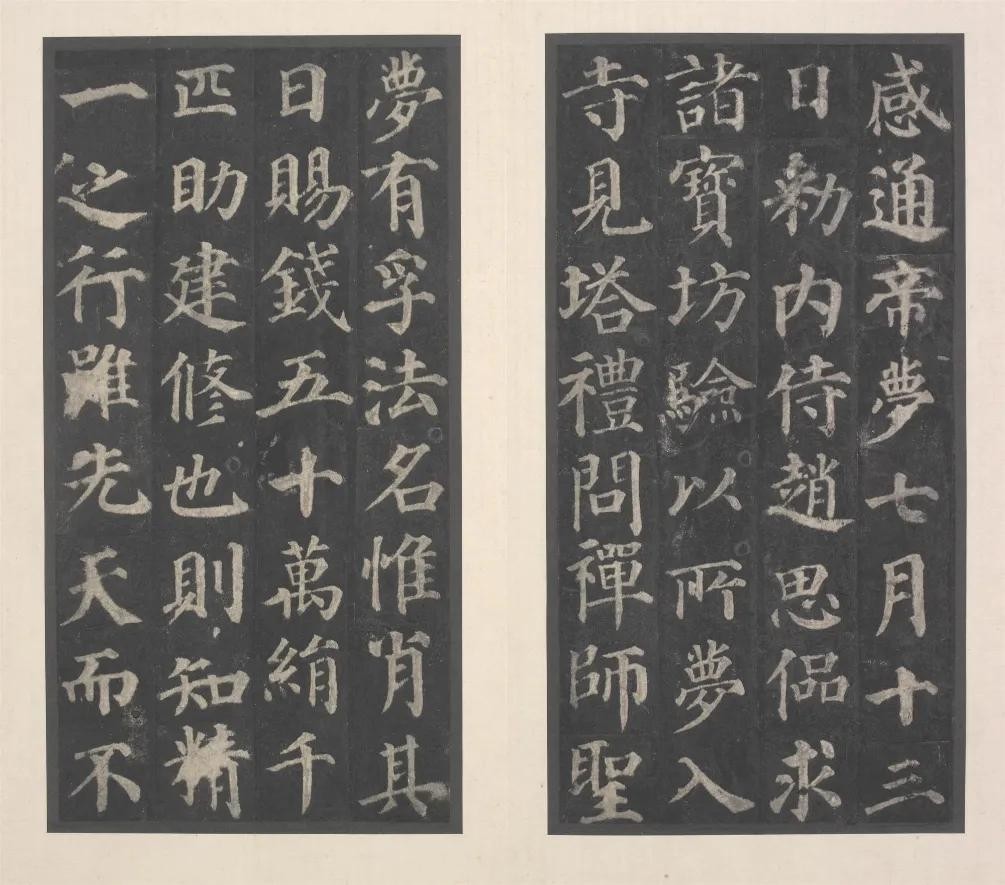 感通帝夢七月十三
日勑内侍趙思偘求
諸寶坊驗以所夢入
寺見塔禮問禪師聖
夢有孚法名惟肖其
日賜錢五十萬絹千
匹助建修也則知精
一之行雖先天而不